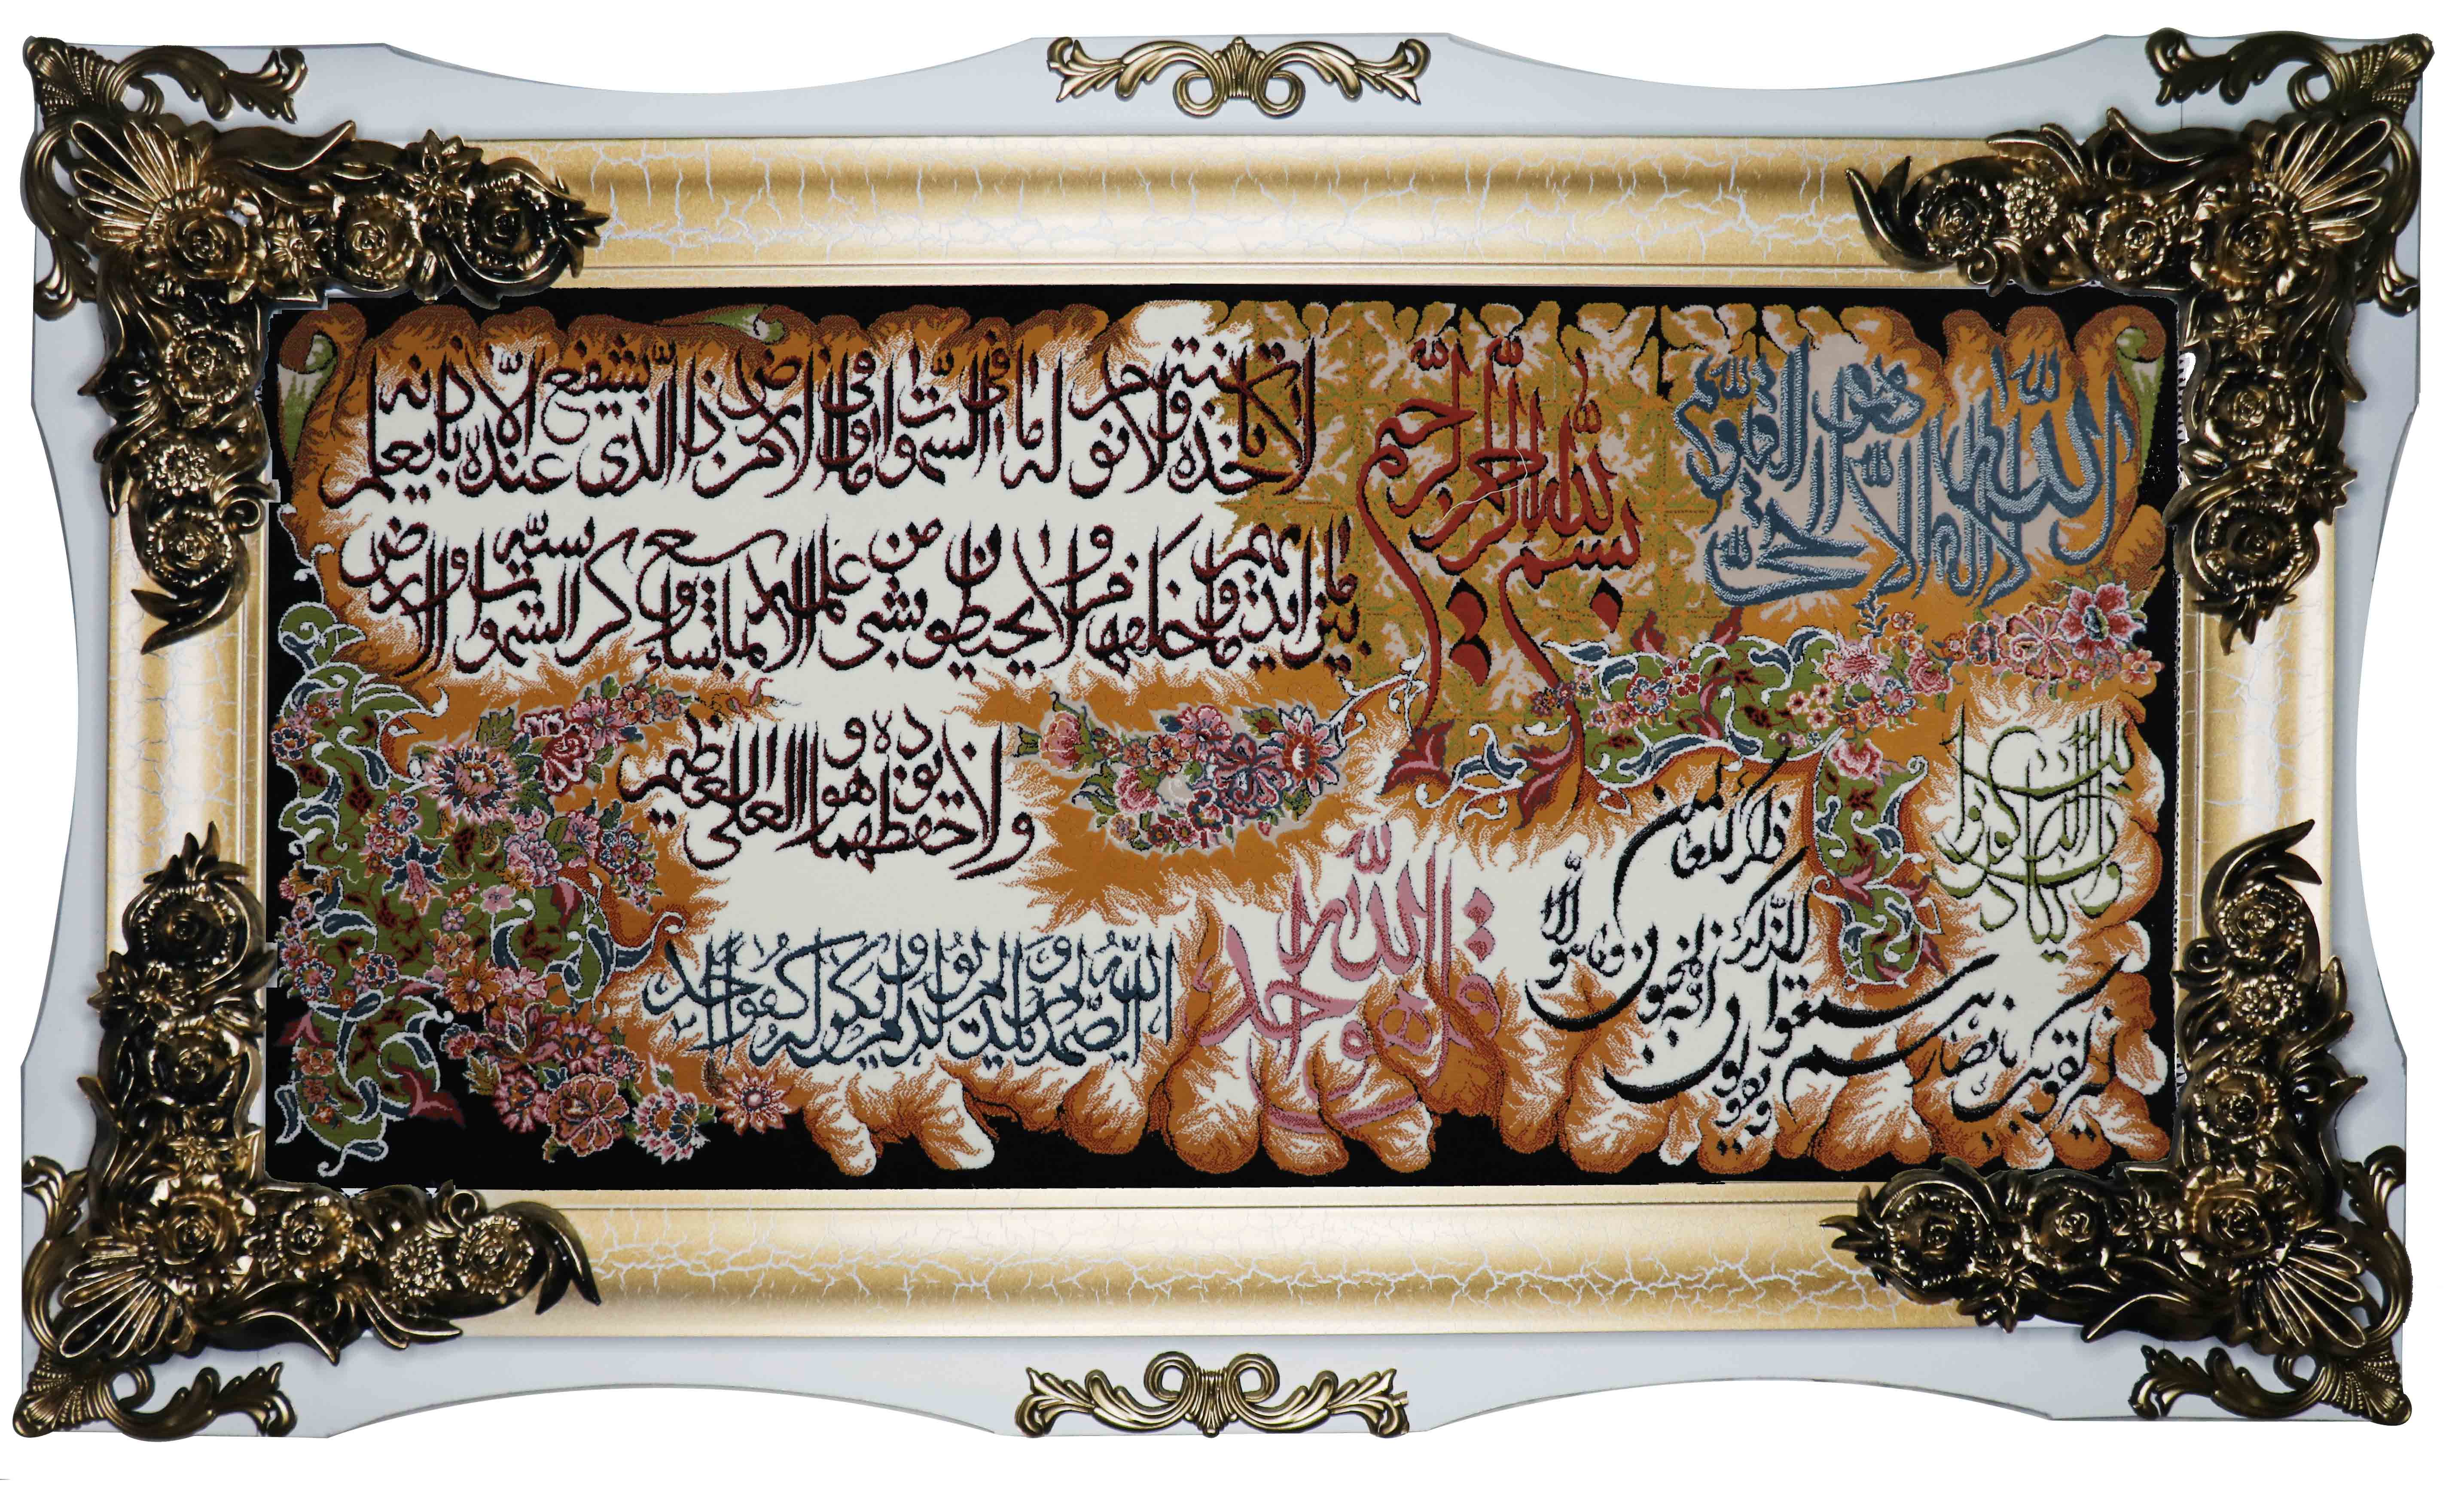 بسم الله الرحمن الرحيم
الله لا اله الا هو الحي القيوم
لا تاخذه سنة ولا نوم له ما في السموات وما في الارض من ذا الذي يشفع عنده الا باذنه يعلم
ما بين ايديهم وما خلفهم ولا يحيطون بشيء من علمه الا بما شاء وسع كرسيه السموات والارض
ولا يؤده حفظهما وهو العلي العظيم
وان يكاد الذين كفروا
ليزلقونك بابصارهم لما سمعوا الذكر ويقولون انه لمجنون وما هو الا ذكر للعالمين
قل هو الله احد
الله الصمد لم يلد ولم يولد ولم يكن له كفوا احد